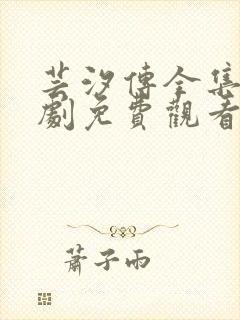 芸汐傳全集
劇免費觀看
蕭子雨